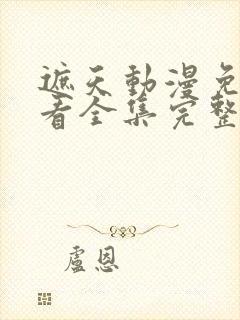 遮天動漫免
看全集完整
盧恩